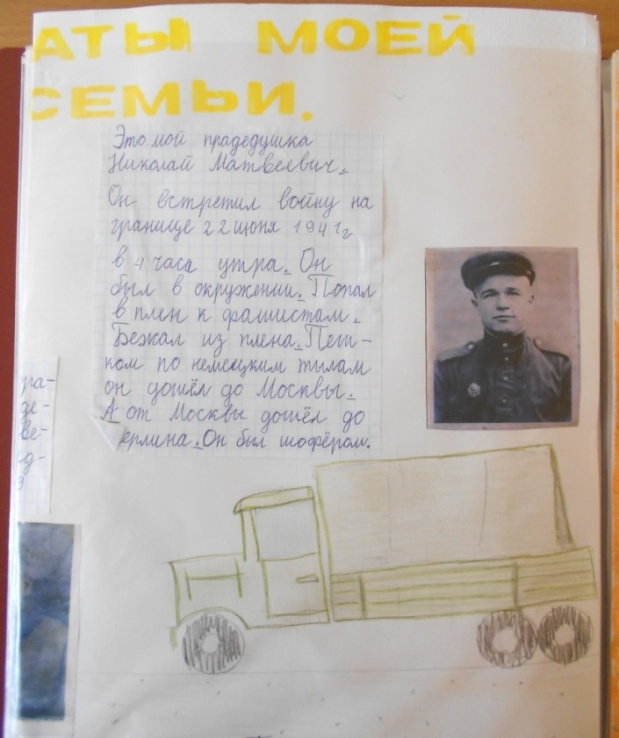 АТЫ МОЕЙ
СЕМЬИ.
Это мой прадедушка
Николай Матвеевич.
Он встретил войну на
границе 22 июня 1941г
в 4 часа утра. Он
был в окружении. Попал
в плен к фашистам.
Бежал из плена. Пеш-
ком по немецким тылам
он дошёл до Москвы.
А от Москвы дошёл до
ерлина. Он был шофёром.
ра-
де-
ве-
д-